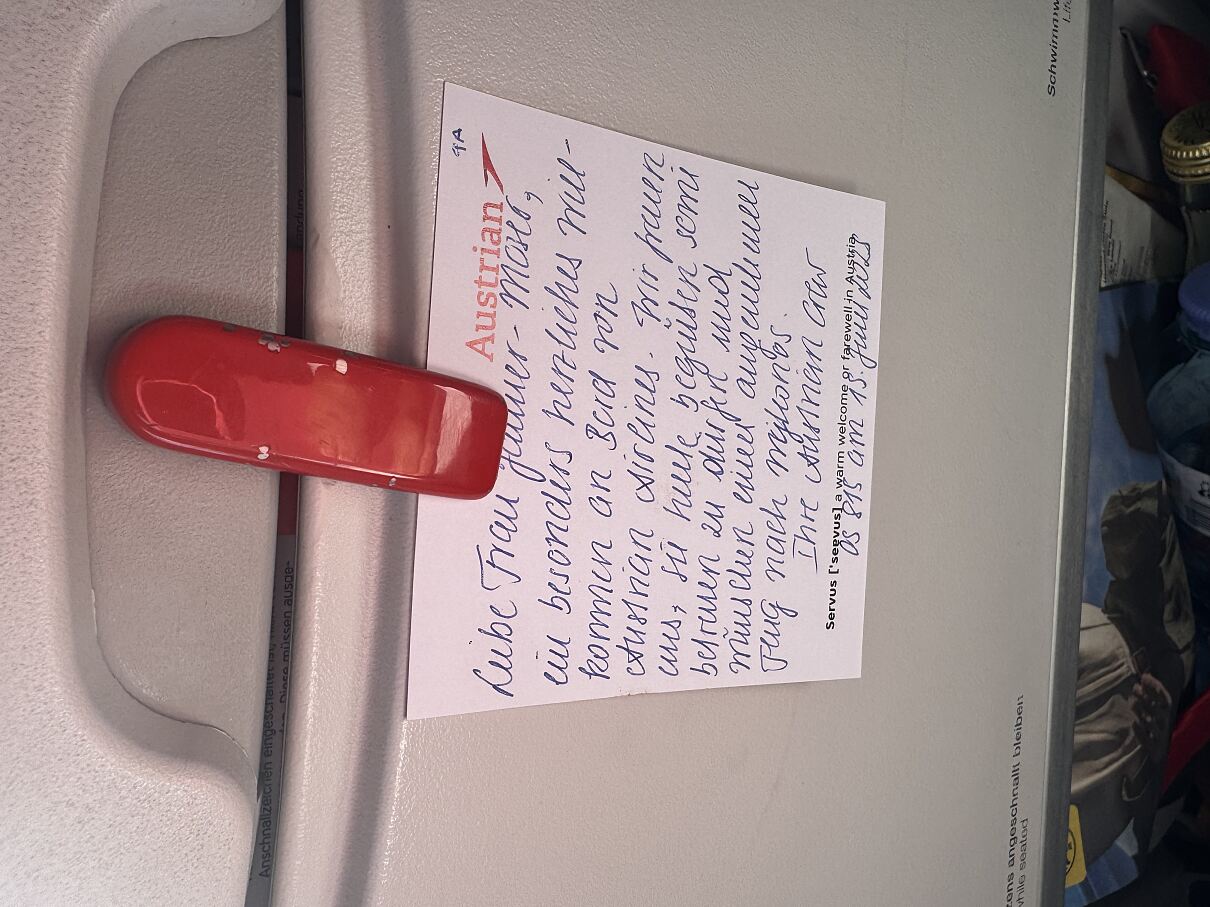 7A
Austrian
Liebe Frau Moser,
ein besonders herzliches Will-
kommen an Bord von
Austrian Airlines. Wir freuen
uns, Sie heute begrüßen sowie
betreuen zu dürfen und
wünschen einen angenehmen
Flug nach
Ihre Austrian Crew
Servus ['seevus] a warm welcome or farewell in Austria
OS 815 am 15. Juni 2023
Anschnallzeichen eingeschaltet ist,
Diese müssen ausge-
zens angeschnallt bleiben
while seated